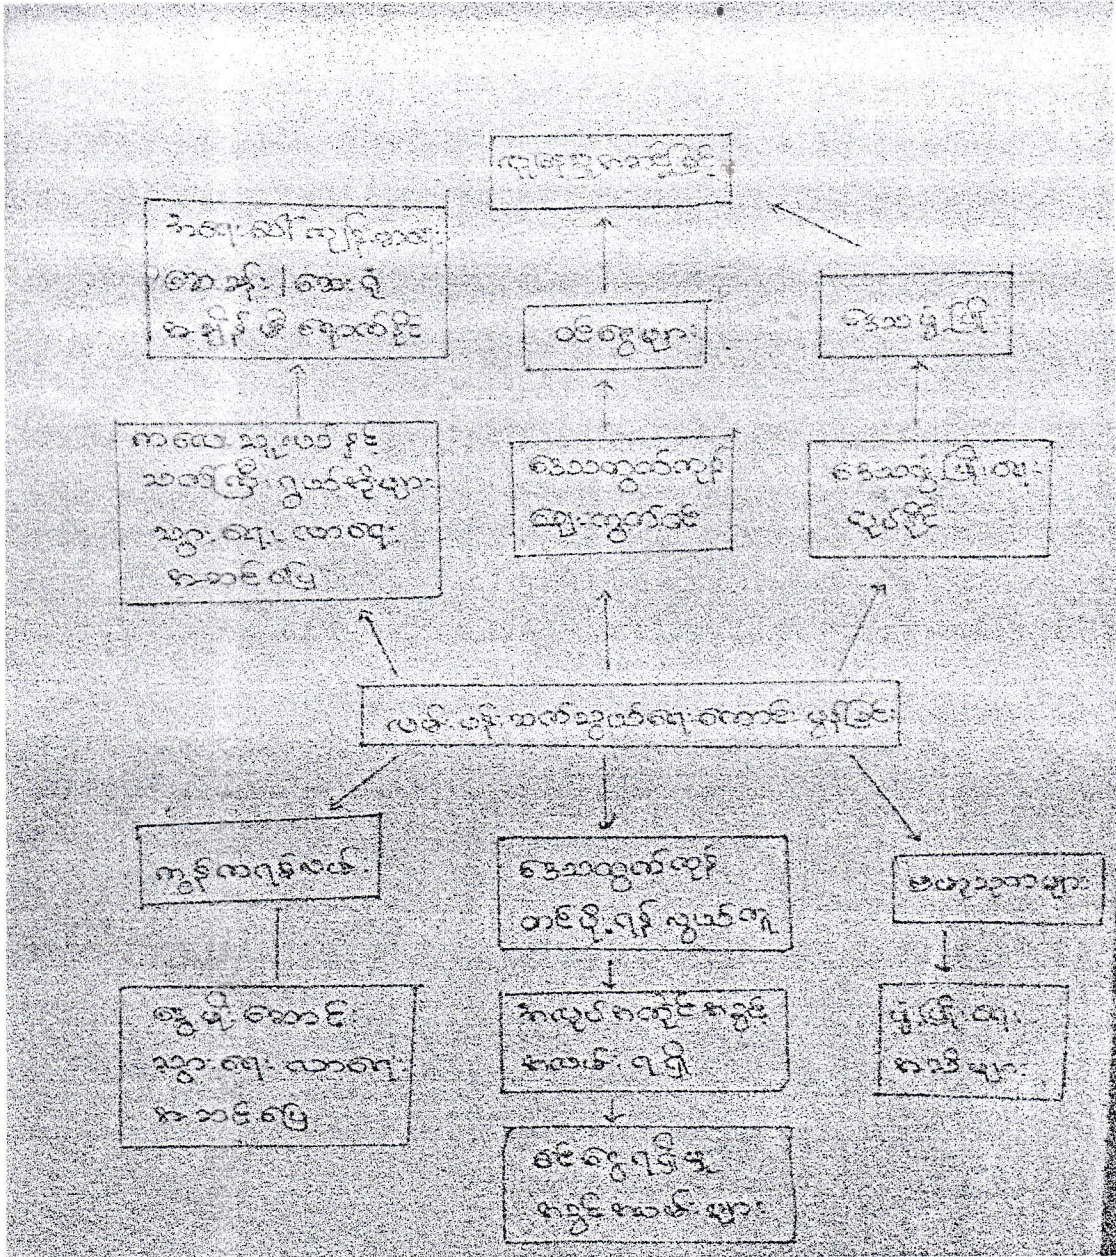 လူမှုစီးပွားမြင့်
အရေးပေါ် ကျန်းမာရေး
ဆေးခန်း / ဆေးရုံ
အချိန်မီ ရောက်နိုင်
ဝင်ငွေများ
ဒေသဖွံ့ဖြိုး
ကလေးသူငယ်နှင့်
သက်ကြီးရွယ်အိုများ
သွားရေးလာရေး
အဆင်ပြေ
ဒေသထွက်ကုန်
ဈေးကွက်ဝင်
ဒေသဖွံ့ဖြိုးရေး
လုပ်နိုင်
လမ်းပန်းဆက်သွယ်ရေးကောင်းမွန်ခြင်း
ကွန်ကရစ်လမ်း
ဒေသထွက်ကုန်
တင်ပို့ရန်လွယ်ကူ
ဗဟုသုတများ
နွေမိုးဆောင်း
သွားရေးလာရေး
အဆင်ပြေ
အလုပ်အကိုင်အခွင့်
အလမ်းရရှိ
ဖွံ့ဖြိုးရေး
အသိများ
ဝင်ငွေရရှိမှု
အခွင့်အလမ်းများ